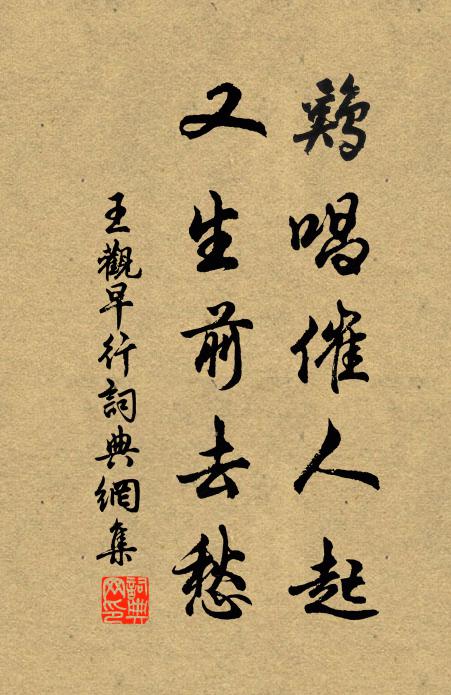 鷄唱催人起
又生前去愁
王觀早行詞典網集
詞典网印